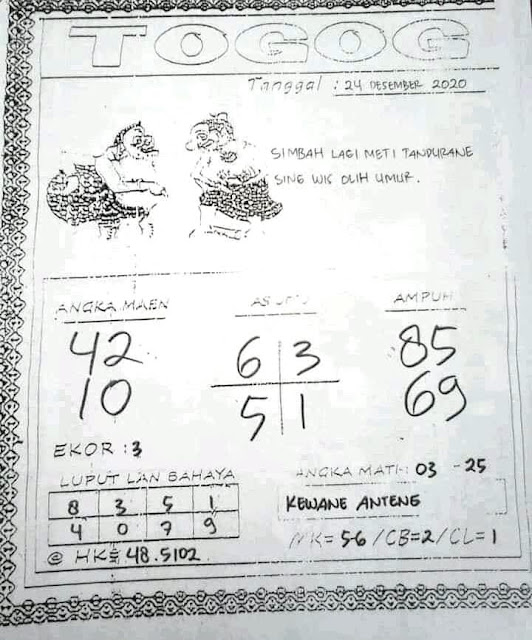 TOGOG
Tanggal : 24 DESEMBER 2020
SIMBAH LAGI METI TANDURANE
SING WIS OLIH UMUR.
ANGKA MAEN
AMPUH
42
10
6 3
5 1
85
69
EKOR : 3
LUPUT LAN BAHAYA
8 3 5 1
4 0 7 9
@ HK= 48.5102
ANGKA MATI : 03 - 25
KEWANE ANTENE
MK= 56 / CB=2 / CL= 1